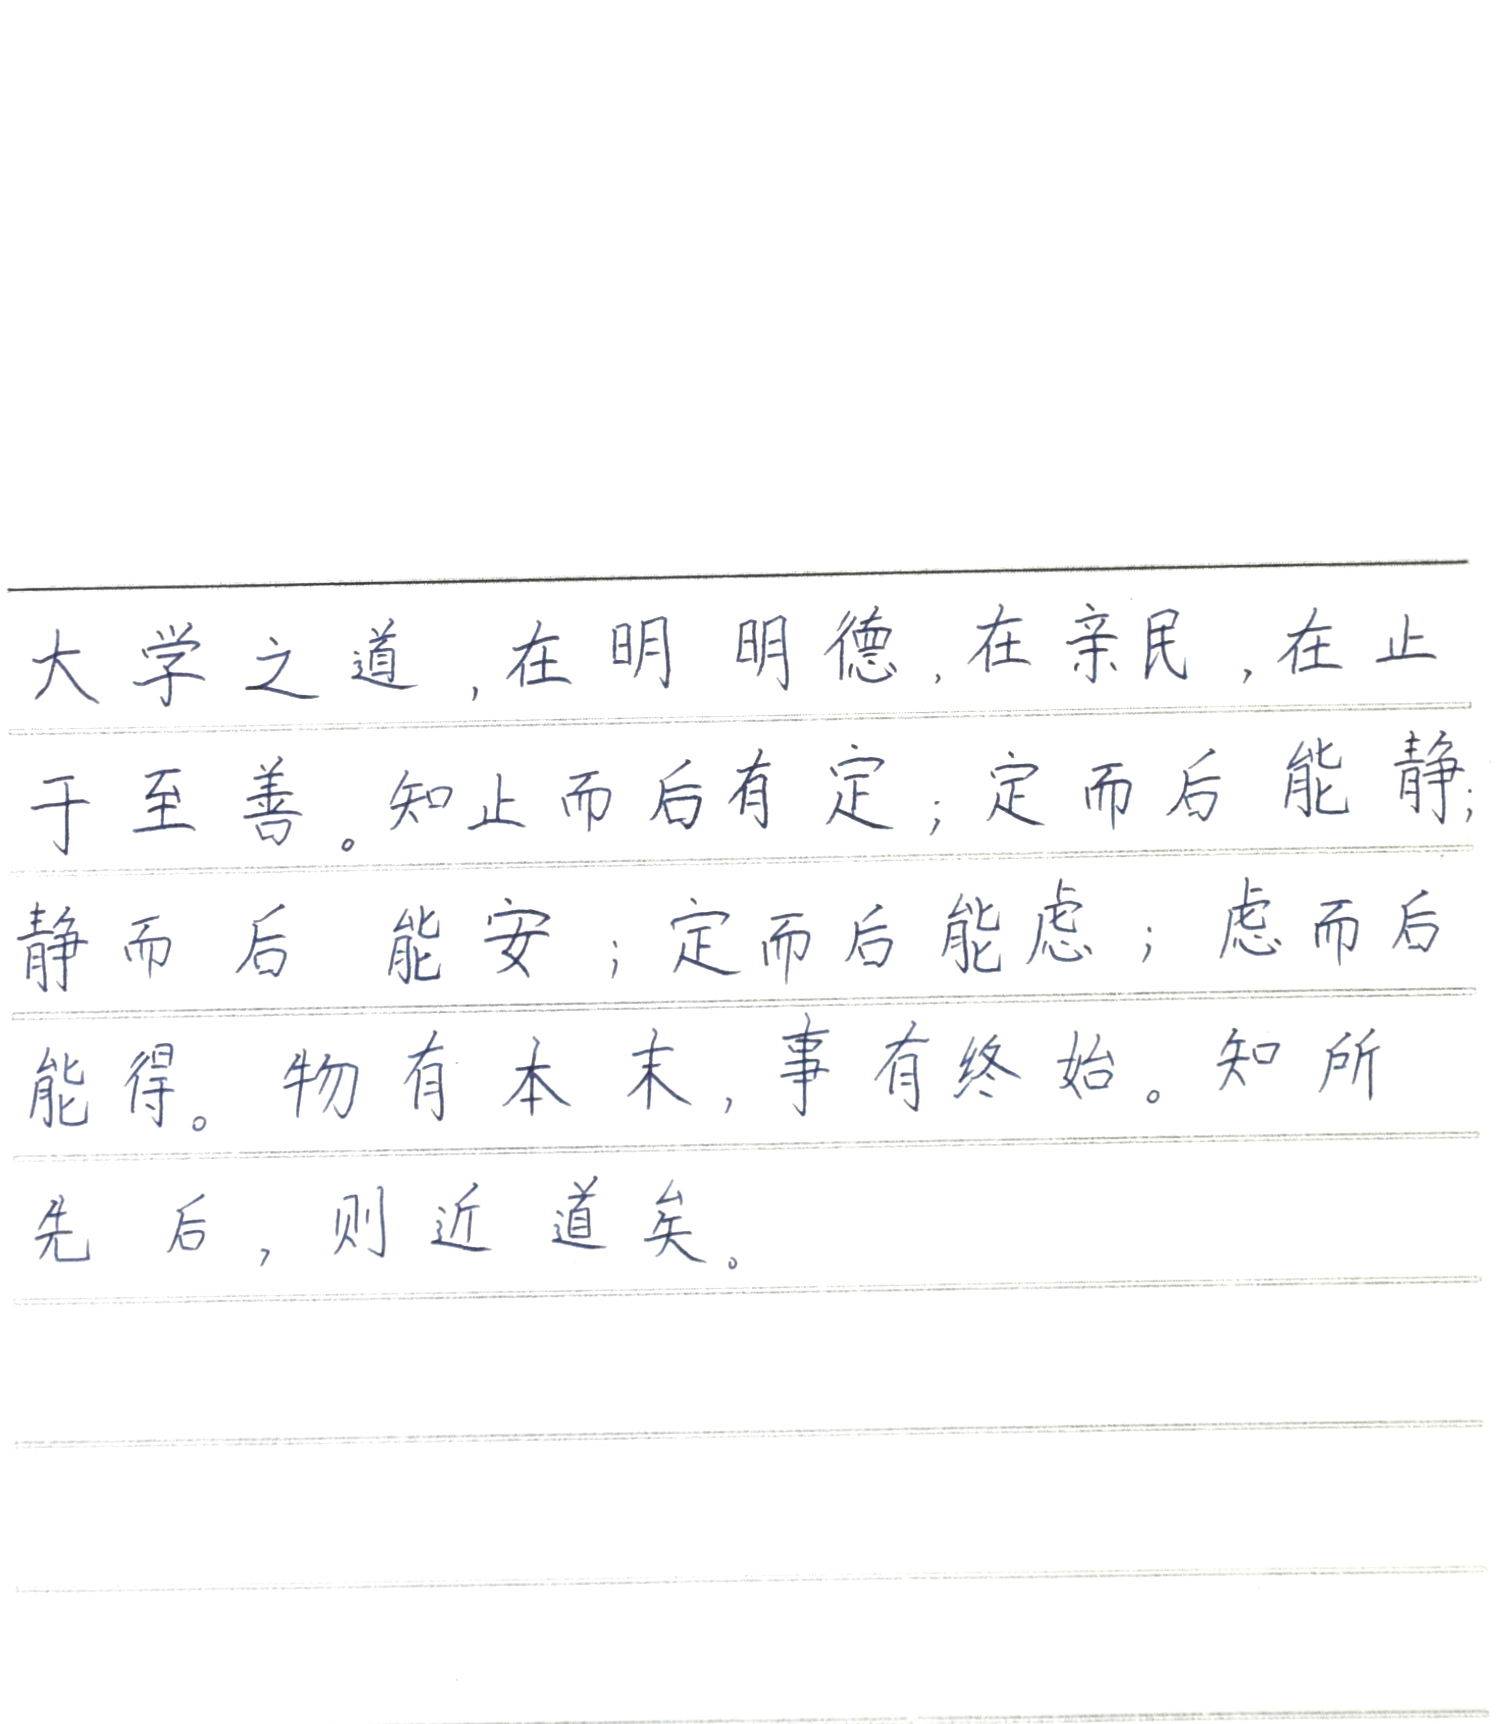 大学之道,在明明德,在亲民,在止
于至善。知止而后有定;定而后能静;
静而后能安;定而后能虑;虑而后
能得。物有本末,事有终始。知所
先后,则近道矣。